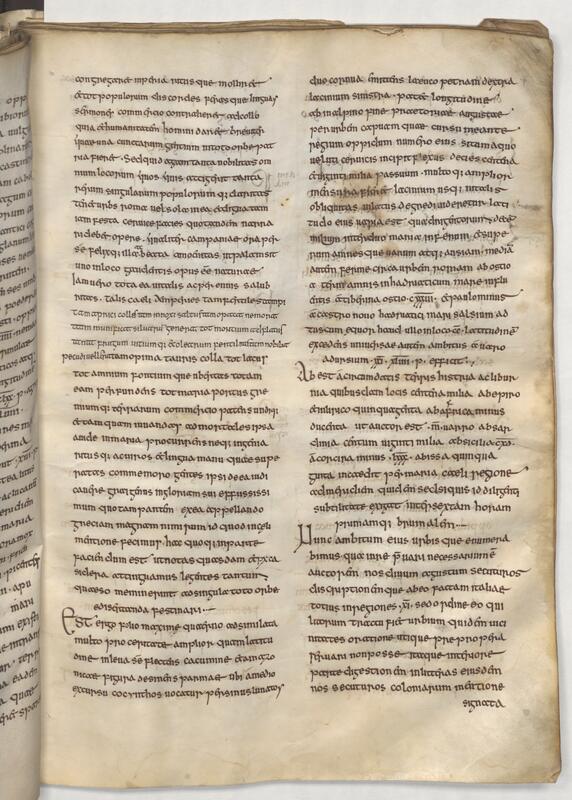 congregaret imperia ritus que molliret
et tot populorum discordes ferasque linguas
sermonis commercio contraheret ad colloq
uia et humanitatem homini daret breuiter
que una cunctarum gentium in toto orbe pat
ria fieret sed quid agam tanta nobilitas om
nium locorum quos quis attigerit tanta
rerum singularum populorum q claritas
tenet urbs roma uel sola in ea
iam festa ceruice facies quo tandem narra
ri debet opere qualiter campaniae ora per
se felix illa beata amoenitas ut palam sit
uno in loco gaudentis opus esse naturae
iam uero tota ea uitalis ac perennis salub
ritas talis caeli temperies tam fertiles campi
tam aprici colles tam innoxi saltus tam opaca nemora
tam munifica siluarum genera tot montium adflatus
tanta frugum uitium q olearum fertilitas tam nobilia
pecudi uellera tam opima tauris colla tot lacus
tot amnium fontium que ubertas totam
eam perfundens tot maria portus gre
miumq terrarum commercio patens undiq
et tamquam iuuandos ad mortales ipsa
auide in maria procurrens neq ingenia
ritusq ac uiros et lingua manu que supe
ratas commemoro gentes ipsi de ea iudi
cauere grai genus in gloriam sui effusissimi
quotam partem ex ea appellando
greciam magnam nimirum id quod in caeli
mentione fecimus hac quoq in parte
faciendum est ut notas quasdam et pauca
sidera attingamus legentes tantum
quaeso meminerint ad singula toto orbe
edisserenda festinari
Est ergo folio maxime querno adsimulata
multo proceritate amplior quam latitu
dine in leua se flectens cacumine et amazo
nicae figura desinens parmae ubi a medio
excursu cocinthos uocatur per sinus lunatos
duo cornua emittens leucopetram dextra
lacinium sinistra patet longitudine
ab alpino fine praetoriae augustae
per urbem capuam que cursu meante
regium oppidum in umero eius situm a quo
ueluti ceruicis incipit flexus decies centena
et uiginti milia passuum multo q amplior
mensura fieret lacinium usq ni talis
obliquitas in latus degredi uideretur lati
tudo eius uaria est quadringentorum decē
milium inter duo maria inferum et supe
rum amnes que uarum atq arsiam media
autem ferme circa urbem romam ab ostio
aterni amnis in hadriaticum mare influ
entis ad tiberina ostia cxxxui et paulo minus
a castro nouo hadriatici maris alsium ad
tuscum equor haud ullo in loco ccc latitudine
excedens uniuersae autem ambitus a uaro
ad arsium xx xluiiii p efficit
Abest a circumdatis terris histria ac libur
nia quibusdam locis centena milia ab epiro
et illirico quinquaginta ab africa minus
ducenta ut auctor est m uarro ab sar
dinia centum uiginti milia ab sicilia
a corcira minus lxxx ab issa quinqua
ginta incedit per maria caeli regione
ad meridiem quidem sed si quis id diligenti
subtilitate exigat inter sextam horam
primamq brumalem
Nunc ambitum eius urbis que enumera
bimus qua in re prefari necessarium ē
auctorem nos diuum augustum secuturos
discriptionem que ab eo factam italiae
totius in regiones xi sed ordine eo qui
litorum tractu fiet urbium quidem uici
nitates oratione utique praepropera
seruari non posse itaque interiore
parte digestionem in litteras eiusdem
nos secuturos coloniarum mentione
signata